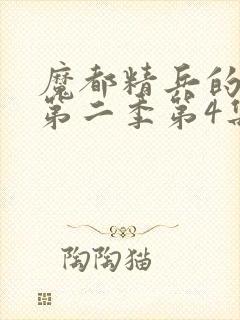 魔都精兵的
第二季第4集
陶陶猫